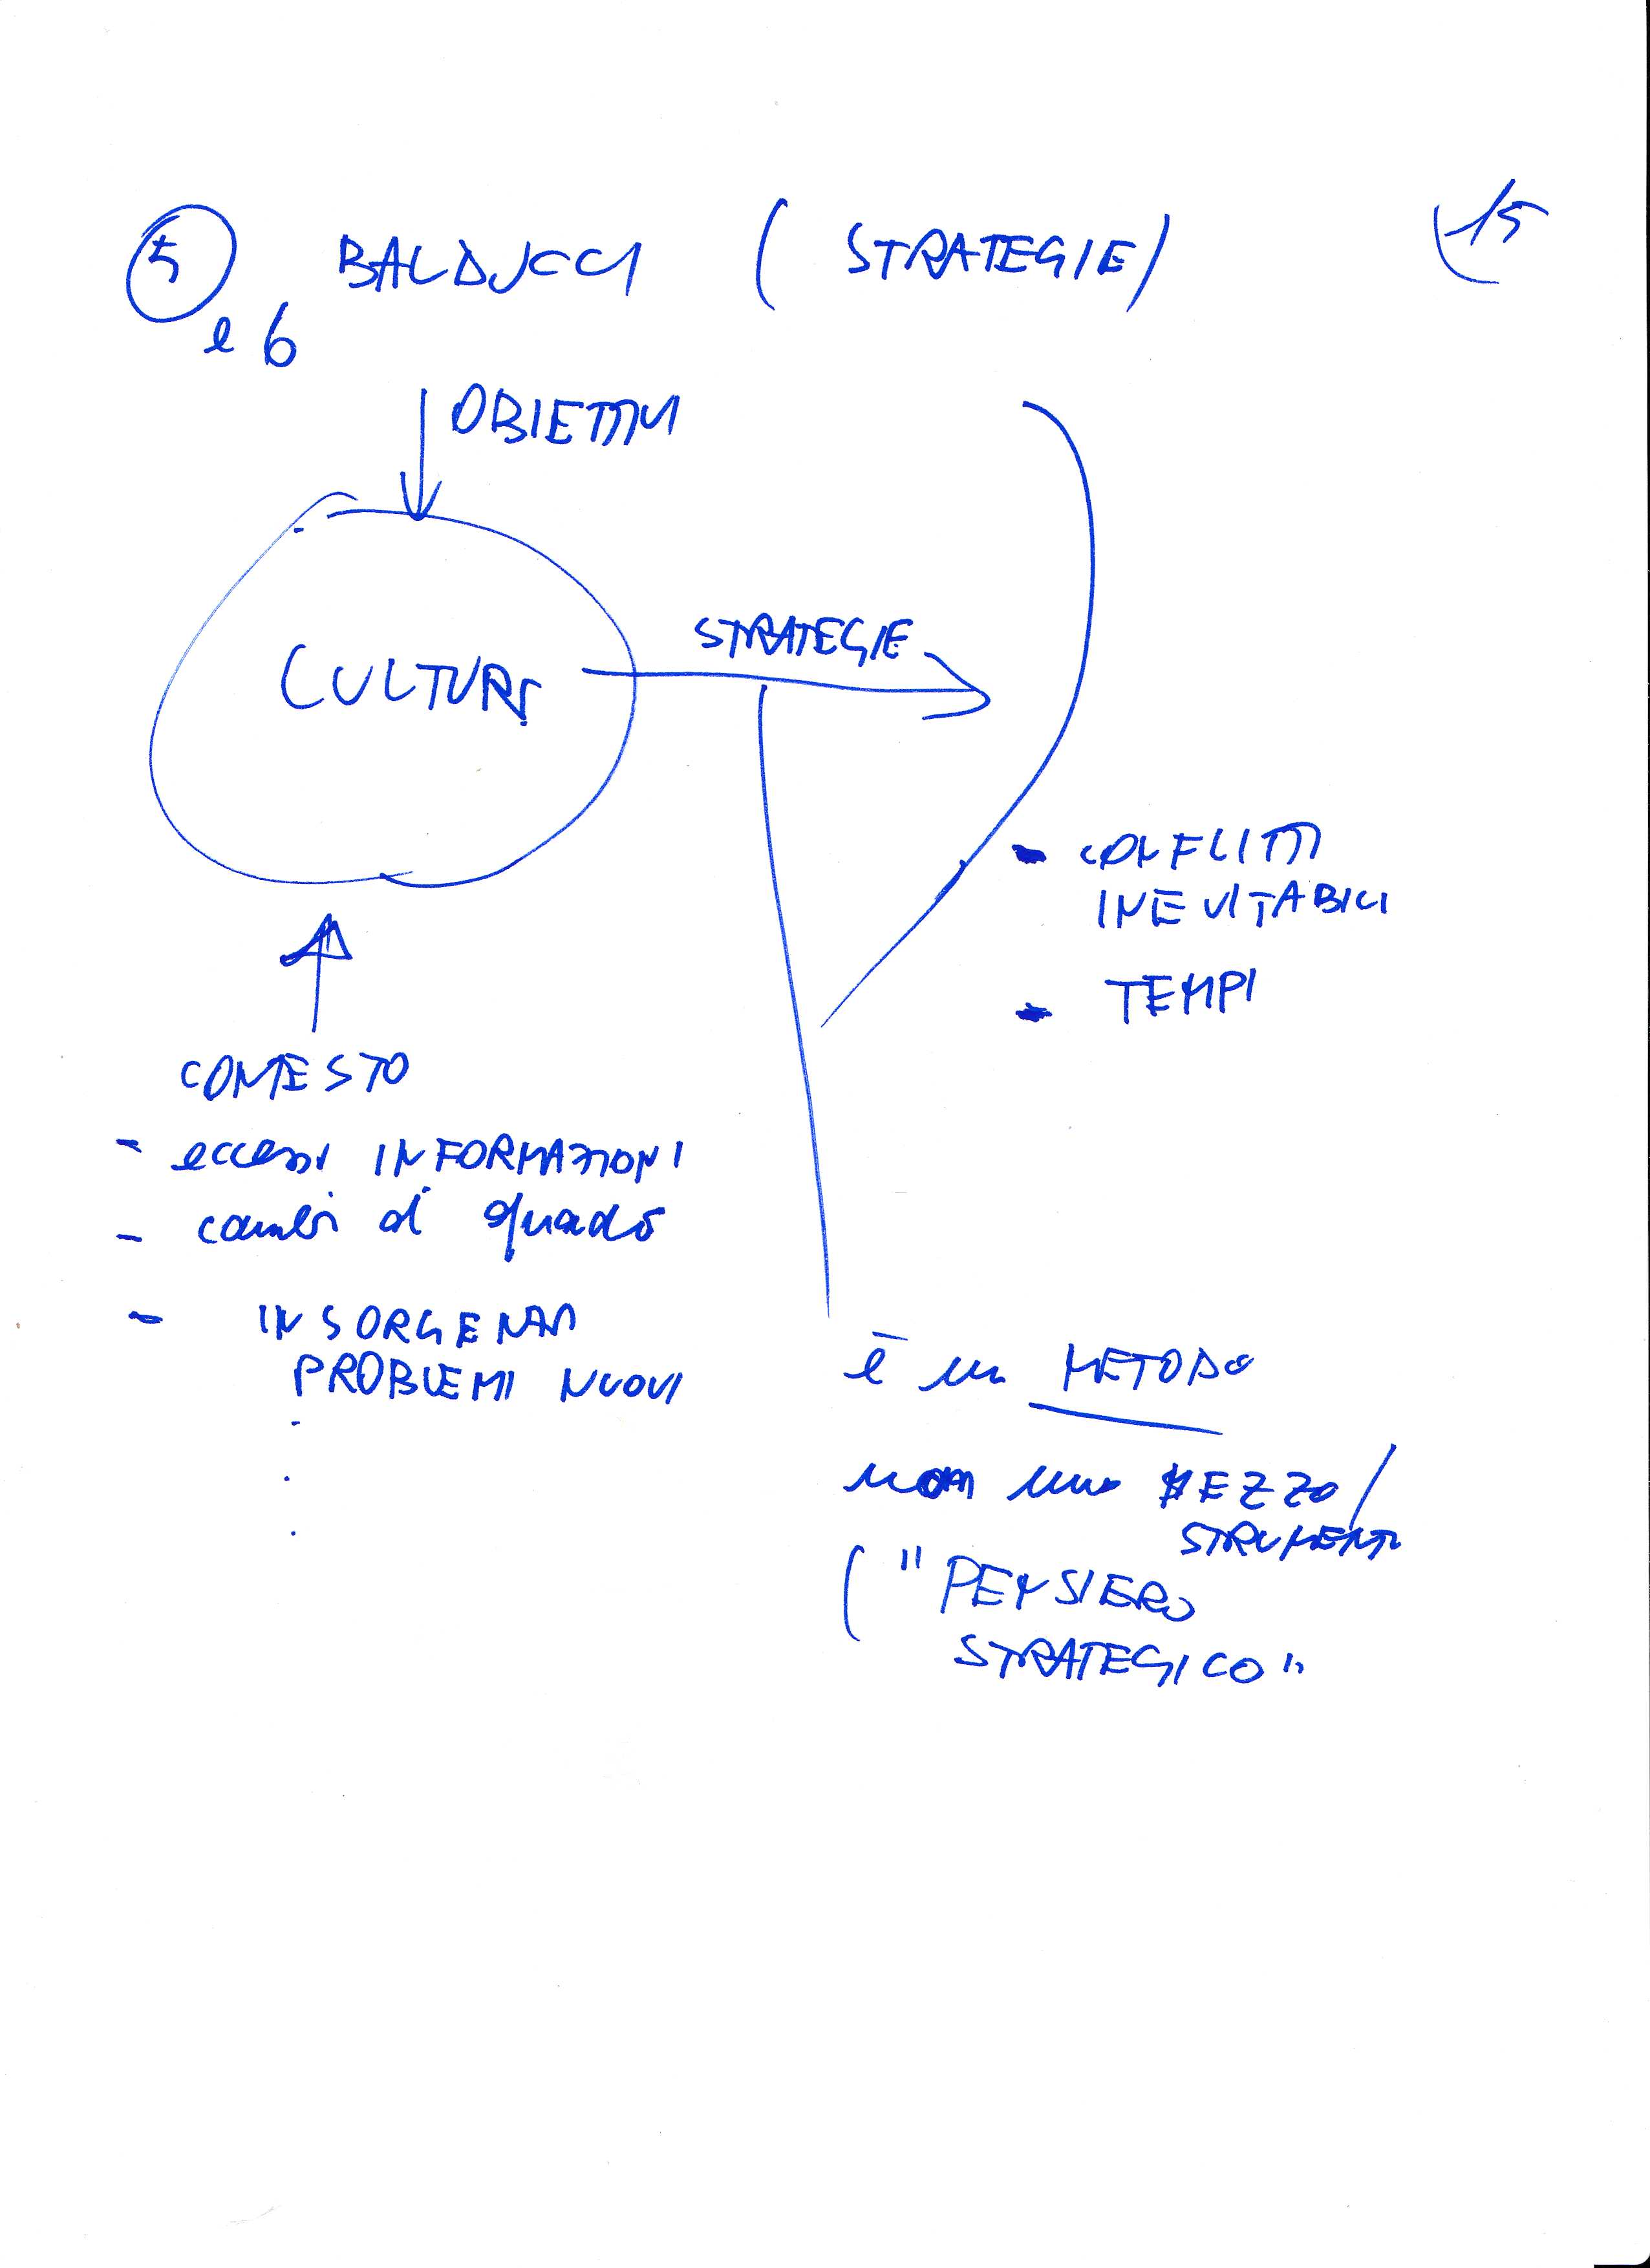 5 BALDUCCI (STRATEGIE) 15
e 6
OBIETTIVI
CULTURA
STRATEGIE
- CONFLITTI
INEVITABILI
- TEMPI
CONTESTO
- eccessi INFORMAZIONI
- cambi di quadro
- INSORGENZA
PROBLEMI NUOVI
.
.
.
è un METODO
non uno MEZZO/
STRUMENTO
("PENSIERO
STRATEGICO"